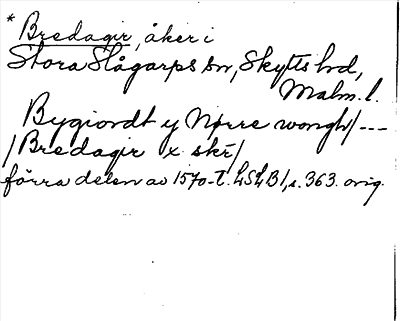 * Bredagir, åker i
Stora Slågarps sn, Skytts hd,
Malm. l.
Bygiordt y Nørre wongh/ ---
/Bredagir x skr/
förra delen av 1570-t. LSLB1, s. 363. orig.